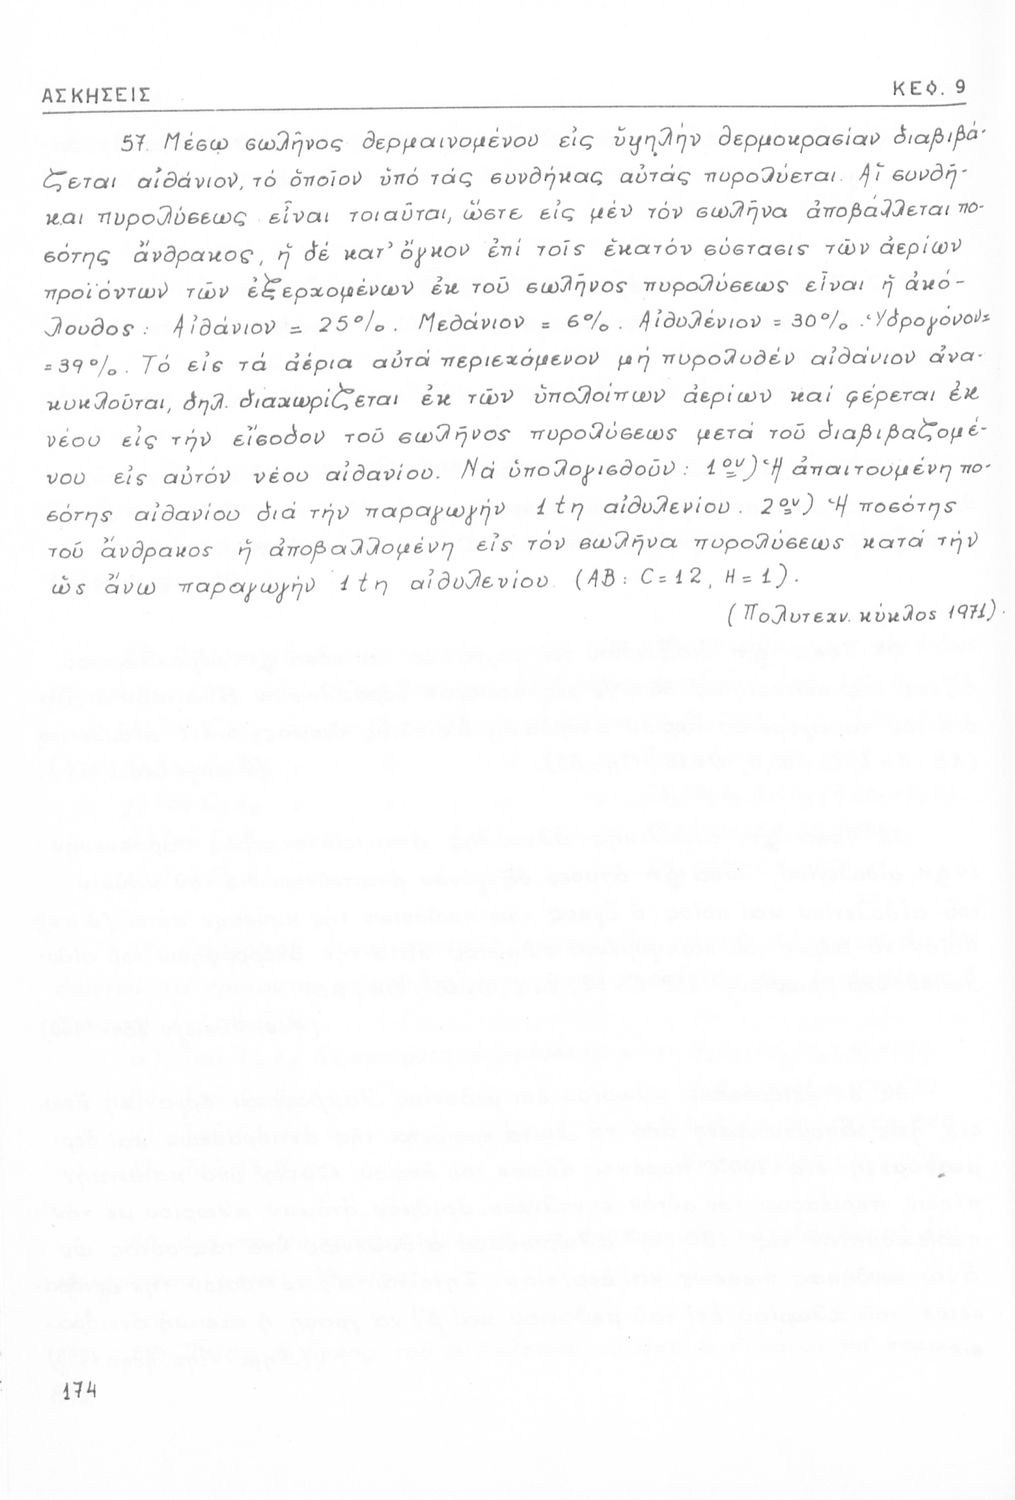 ΑΣΚΗΣΕΙΣ ΚΕΦ. 9
57. Μέσῳ σωλῆνος θερμαινομένου εἰς ὑψηλήν θερμοκρασίαν διαβιβά-
ζεται αἰθάνιον, τό ὁποῖον ὑπό τάς συνθήκας αὐτάς πυρολύεται. Αἱ συνθῆ-
και πυρολύσεως εἶναι τοιαῦται, ὥστε εἰς μέν τόν σωλῆνα ἀποβάλλεται πο-
σότης ἄνθρακος, ἡ δέ κατ' ὄγκον ἐπί τοῖς ἑκατόν σύστασις τῶν ἀερίων
προϊόντων τῶν ἐξερχομένων ἐκ τοῦ σωλῆνος πυρολύσεως εἶναι ἡ ἀκό-
λουθος: Αἰθάνιον = 25%. Μεθάνιον = 6%. Αἰθυλένιον = 30%. Ὑδρογόνον=
=39%. Τό εἰς τά ἀέρια αὐτά περιεχόμενον μή πυρολυθέν αἰθάνιον ἀνα-
κυκλοῦται, δηλ. διαχωρίζεται ἐκ τῶν ὑπολοίπων ἀερίων καί φέρεται ἐκ
νέου εἰς τήν εἴσοδον τοῦ σωλῆνος πυρολύσεως μετά τοῦ διαβιβαζομέ-
νου εἰς αὐτόν νέου αἰθανίου. Νά ὑπολογισθοῦν: 1ον) Ἡ ἀπαιτουμένη πο-
σότης αἰθανίου διά τήν παραγωγήν 1 tη αἰθυλενίου. 2ον) Ἡ ποσότης
τοῦ ἄνθρακος ἡ ἀποβαλλομένη εἰς τόν σωλῆνα πυρολύσεως κατά τήν
ὡς ἄνω παραγωγήν 1 tη αἰθυλενίου. (ΑΒ: C=12, H=1).
(Πολυτεχν. κύκλος 1971).
174